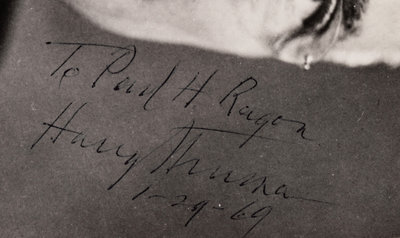 To Paul H Ragon
Harry Truman
1-29-69